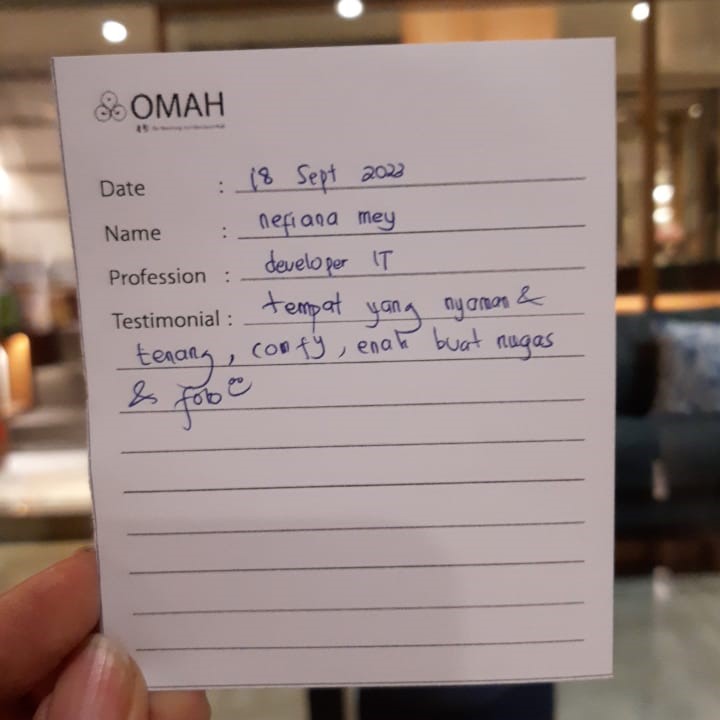 OMAH
Date : 18 Sept 2023
Name : nefiana mey
Profession : developer IT
Testimonial : tempat yang nyaman &
tenang, comfy, enak buat nugas
& foto